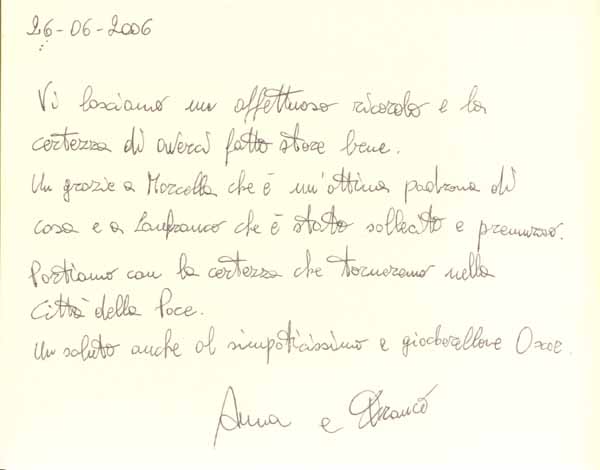 26-06-2006
Vi lasciamo un affettuoso ricordo e la
certezza di averci fatto stare bene.
Un grazie a Marcella che è un'ottima padrona di
casa e a Lanfranco che è stato sollecito e premuroso.
Partiamo con la certezza che torneremo nella
Città della Pace.
Un saluto anche al simpaticissimo e giocherellone Oscar.
Anna e Franco